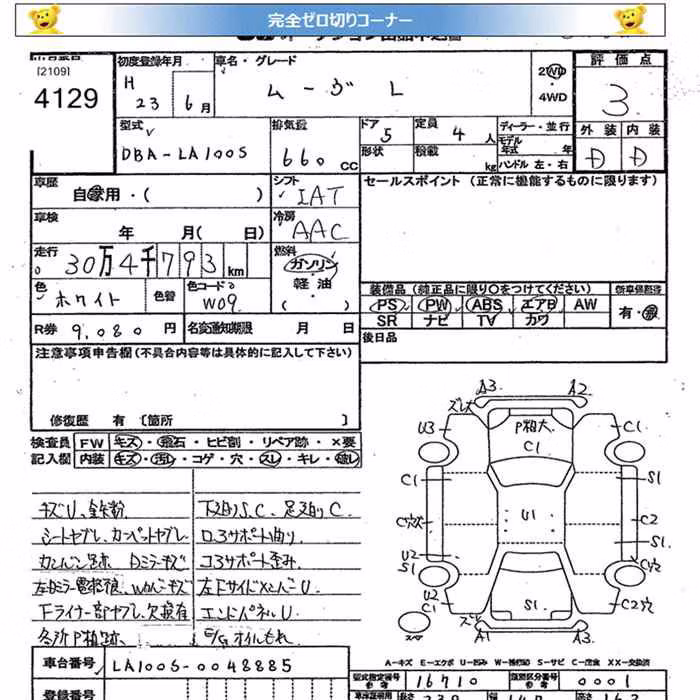 完全ゼロ切りコーナー
[2109]
4129
初度登録年月
H 23 6月
車名・グレード
ムーヴ L
2WD
4WD
評価点
3
外装 内装
D D
型式
DBA-LA100S
排気量
660 CC
ドア 5
形状
定員 4 人
積載 kg
ディーラー・並行
モデル年式 年
ハンドル 左・右
車歴
自家用・( )
シフト
IAT
セールスポイント (正常に機能するものに限ります)
車検
年 月( 日)
冷房
AAC
走行
30万4千793 km
燃料
ガソリン
軽油
( )
色
ホワイト
色替
色コード
W09
装備品 (純正品に限り○をつけてください)
PS PW ABS エアB AW
SR ナビ TV カワ
新車保証書
有・無
R券 9,080 円
名変通知期限 月 日
後日品
注意事項申告欄 (不具合内容等は具体的に記入して下さい)
修復歴 有 [箇所 ]
検査員 FW キズ・飛石・ヒビ割・リペア跡・×要
記入欄 内装 キズ・汚レ・コゲ・穴・スレ・キレ・破レ
キズU、鉄粉
シートヤブレ、カーペットヤブレ
左Dミラー電格狼、Wカバーキズ
天ライナー部ヤブレ、欠損有
各所P粗跡、
下廻りS、C、足廻りC
ロ、3サポート曲り
コ3サポート歪み
エンドパネルU
E/Gオイルもれ
A3 A2
ズレ大
U3
P粗大
C1
C1
C1
S1
C穴大
U1
C2
U2
S1
S1
U2
C1
S1
C2穴
A1 A3
A-キズ E-エクボ U-凹み W-補修跡 S-サビ C-腐食 XX-交換済
車台番号 LA100S-0048885
型式指定番号 参考 16710
類別区分番号 参考 0001
登録番号